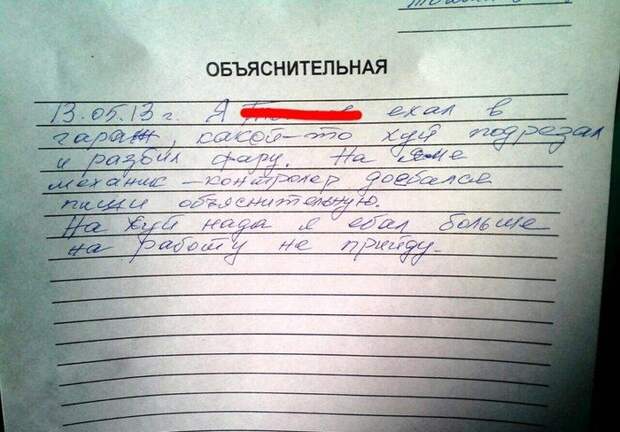 ОБЪЯСНИТЕЛЬНАЯ
13.05.13 г. Я ехал в
гараж, какой-то хуй подрезал
и разбил фару. На
механик-контролер доебался
пиши объяснительную.
На хуй нада я ебал больше
на работу не прийду.